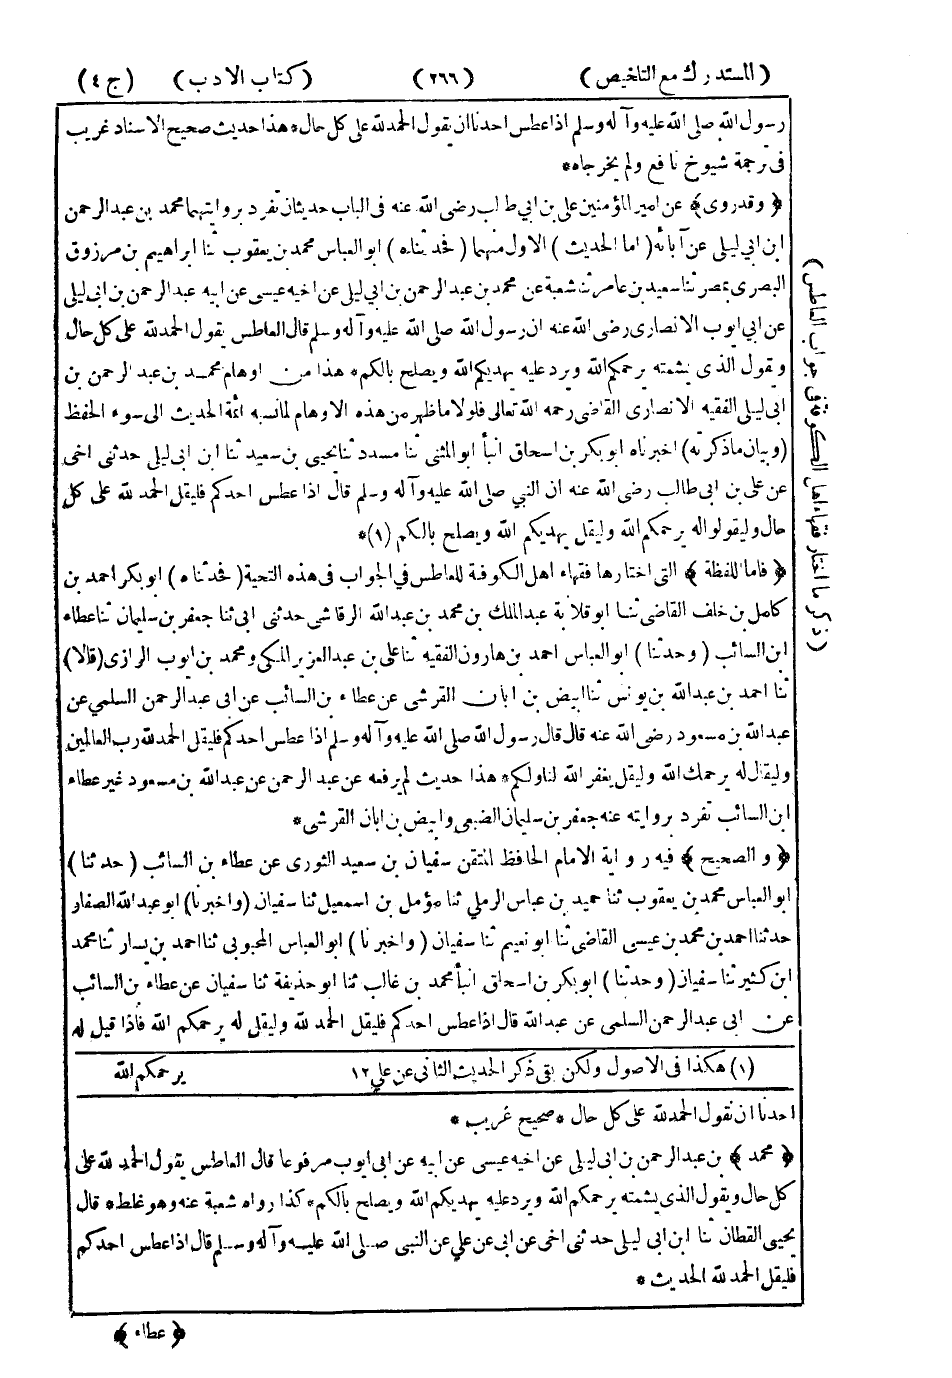 (المستدرك مع التلخيص) (٢٦٦) (كتاب الادب) (ج ٤)
رسول الله صلى الله عليه وآله وسلم اذا عطس احدنا ان يقول الحمد لله على كل حال* هذا حديث صحيح الاسناد غريب
فى ترجمة شيوخ نافع ولم يخرجاه*
﴿ وقد روى ﴾ عن امير المؤمنين على بن ابى طالب رضى الله عنه فى الباب حديثان تفرد بروايتهما محمد بن عبد الرحمن
ابن ابى ليلى عن آبائه (اما الحديث) الاول منهما (فحدثناه) ابو العباس محمد بن يعقوب ثنا ابراهيم بن مرزوق
البصرى بمصر ثنا سعيد بن عامر ثنا شعبة عن محمد بن عبد الرحمن بن ابى ليلى عن اخيه عيسى عن ابيه عبد الرحمن بن ابى ليلى
عن ابى ايوب الانصارى رضى الله عنه ان رسول الله صلى الله عليه وآله وسلم قال العاطس يقول الحمد لله على كل حال
ويقول الذى يشمته يرحمكم الله ويرد عليه يهديكم الله ويصلح بالكم* هذا من اوهام محمد بن عبد الرحمن بن
ابى ليلى الفقيه الانصارى القاضى رحمه الله تعالى فلولا ما ظهر من هذه الاوهام لما نسبه ائمة الحديث الى سوء الحفظ
(وبيان ما ذكرته) اخبرناه ابو بكر بن اسحاق انبأ ابو المثنى ثنا مسدد ثنا يحيى بن سعيد ثنا ابن ابى ليلى حدثنى اخى
عن على بن ابى طالب رضى الله عنه ان النبي صلى الله عليه وآله وسلم قال اذا عطس احدكم فليقل الحمد لله على كل
حال وليقولوا له يرحمكم الله وليقل يهديكم الله ويصلح بالكم (١)*
﴿ فاما اللفظة ﴾ التى اختارها فقهاء اهل الكوفة للعاطس في الجواب فى هذه التحية (فحدثناه) ابو بكر احمد بن
كامل بن خلف القاضى ثنا ابو قلابة عبد الملك بن محمد بن عبد الله الرقاشى حدثنى ابى ثنا جعفر بن سليمان ثنا عطاء
ابن السائب (وحدثنا) ابو العباس احمد بن هارون الفقيه ثنا على بن عبد العزيز المكى ومحمد بن ايوب الرازى (قالا)
ثنا احمد بن عبد الله بن يونس ثنا ابيض بن ابان القرشى عن عطاء بن السائب عن ابى عبد الرحمن السلمي عن
عبد الله بن مسعود رضى الله عنه قال قال رسول الله صلى الله عليه وآله وسلم اذا عطس احدكم فليقل الحمد لله رب العالمين
وليقال له يرحمك الله وليقل يغفر الله لنا ولكم* هذا حديث لم يرفعه عن عبد الرحمن عن عبد الله بن مسعود غير عطاء
ابن السائب تفرد بروايته عنه جعفر بن سليمان الضبعى وابيض بن ابان القرشى*
﴿ والصحيح ﴾ فيه رواية الامام الحافظ المتقن سفيان بن سعيد الثورى عن عطاء بن السائب (حدثنا)
ابو العباس محمد بن يعقوب ثنا حميد بن عباس الرملي ثنا مؤمل بن اسمعيل ثنا سفيان (واخبرنا) ابو عبد الله الصفار
حدثنا احمد بن محمد بن عيسى القاضى ثنا ابو نعيم ثنا سفيان (واخبرنا) ابو العباس المحبوبى ثنا احمد بن يسار ثنا محمد
ابن كثير ثنا سفيان (وحدثنا) ابو بكر بن اسحاق انبأ محمد بن غالب ثنا ابو حذيفة ثنا سفيان عن عطاء بن السائب
عن ابى عبد الرحمن السلمى عن عبد الله قال اذا عطس احدكم فليقل الحمد لله وليقل له يرحمكم الله فاذا قيل له
(١) هكذا فى الاصول ولكن بقى ذكر الحديث الثانى عن على ١٢ يرحمكم الله
احدنا ان نقول الحمد لله على كل حال* صحيح غريب*
﴿ محمد ﴾ بن عبد الرحمن بن ابى ليلى عن اخيه عيسى عن ابيه عن ابى ايوب مرفوعا قال العاطس يقول الحمد لله على
كل حال ويقول الذى يشمته يرحمكم الله ويرد عليه يهديكم الله ويصلح بالكم* كذا رواه شعبة عنه وهو غلط* قال
يحيى القطان ثنا ابن ابى ليلى حدثنى اخى عن ابى عن علي عن النبى صلى الله عليه وآله وسلم قال اذا عطس احدكم
فليقل الحمد لله الحديث*
﴿ عطاء ﴾
(ذكر ما اختار فقهاء اهل الكوفة فى جواب العاطس)